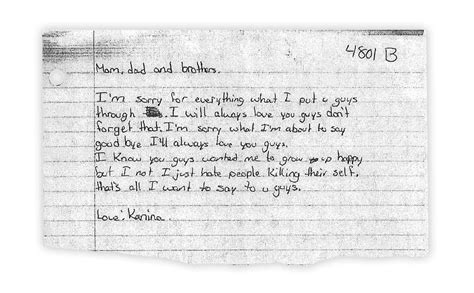 4801 B
Mom, dad and brothers.
I'm sorry for everything what I put u guys
through. I will always love you guys don't
forget that. I'm sorry what I'm about to say
good bye I'll always love you guys.
I know you guys wanted me to grow up happy
but I not I just hate people killing their self.
that's all I want to say to u guys.
Love: Kanina.